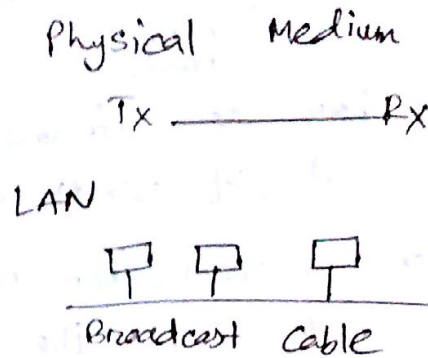 Physical Medium
Tx Rx
LAN
Broadcast Cable